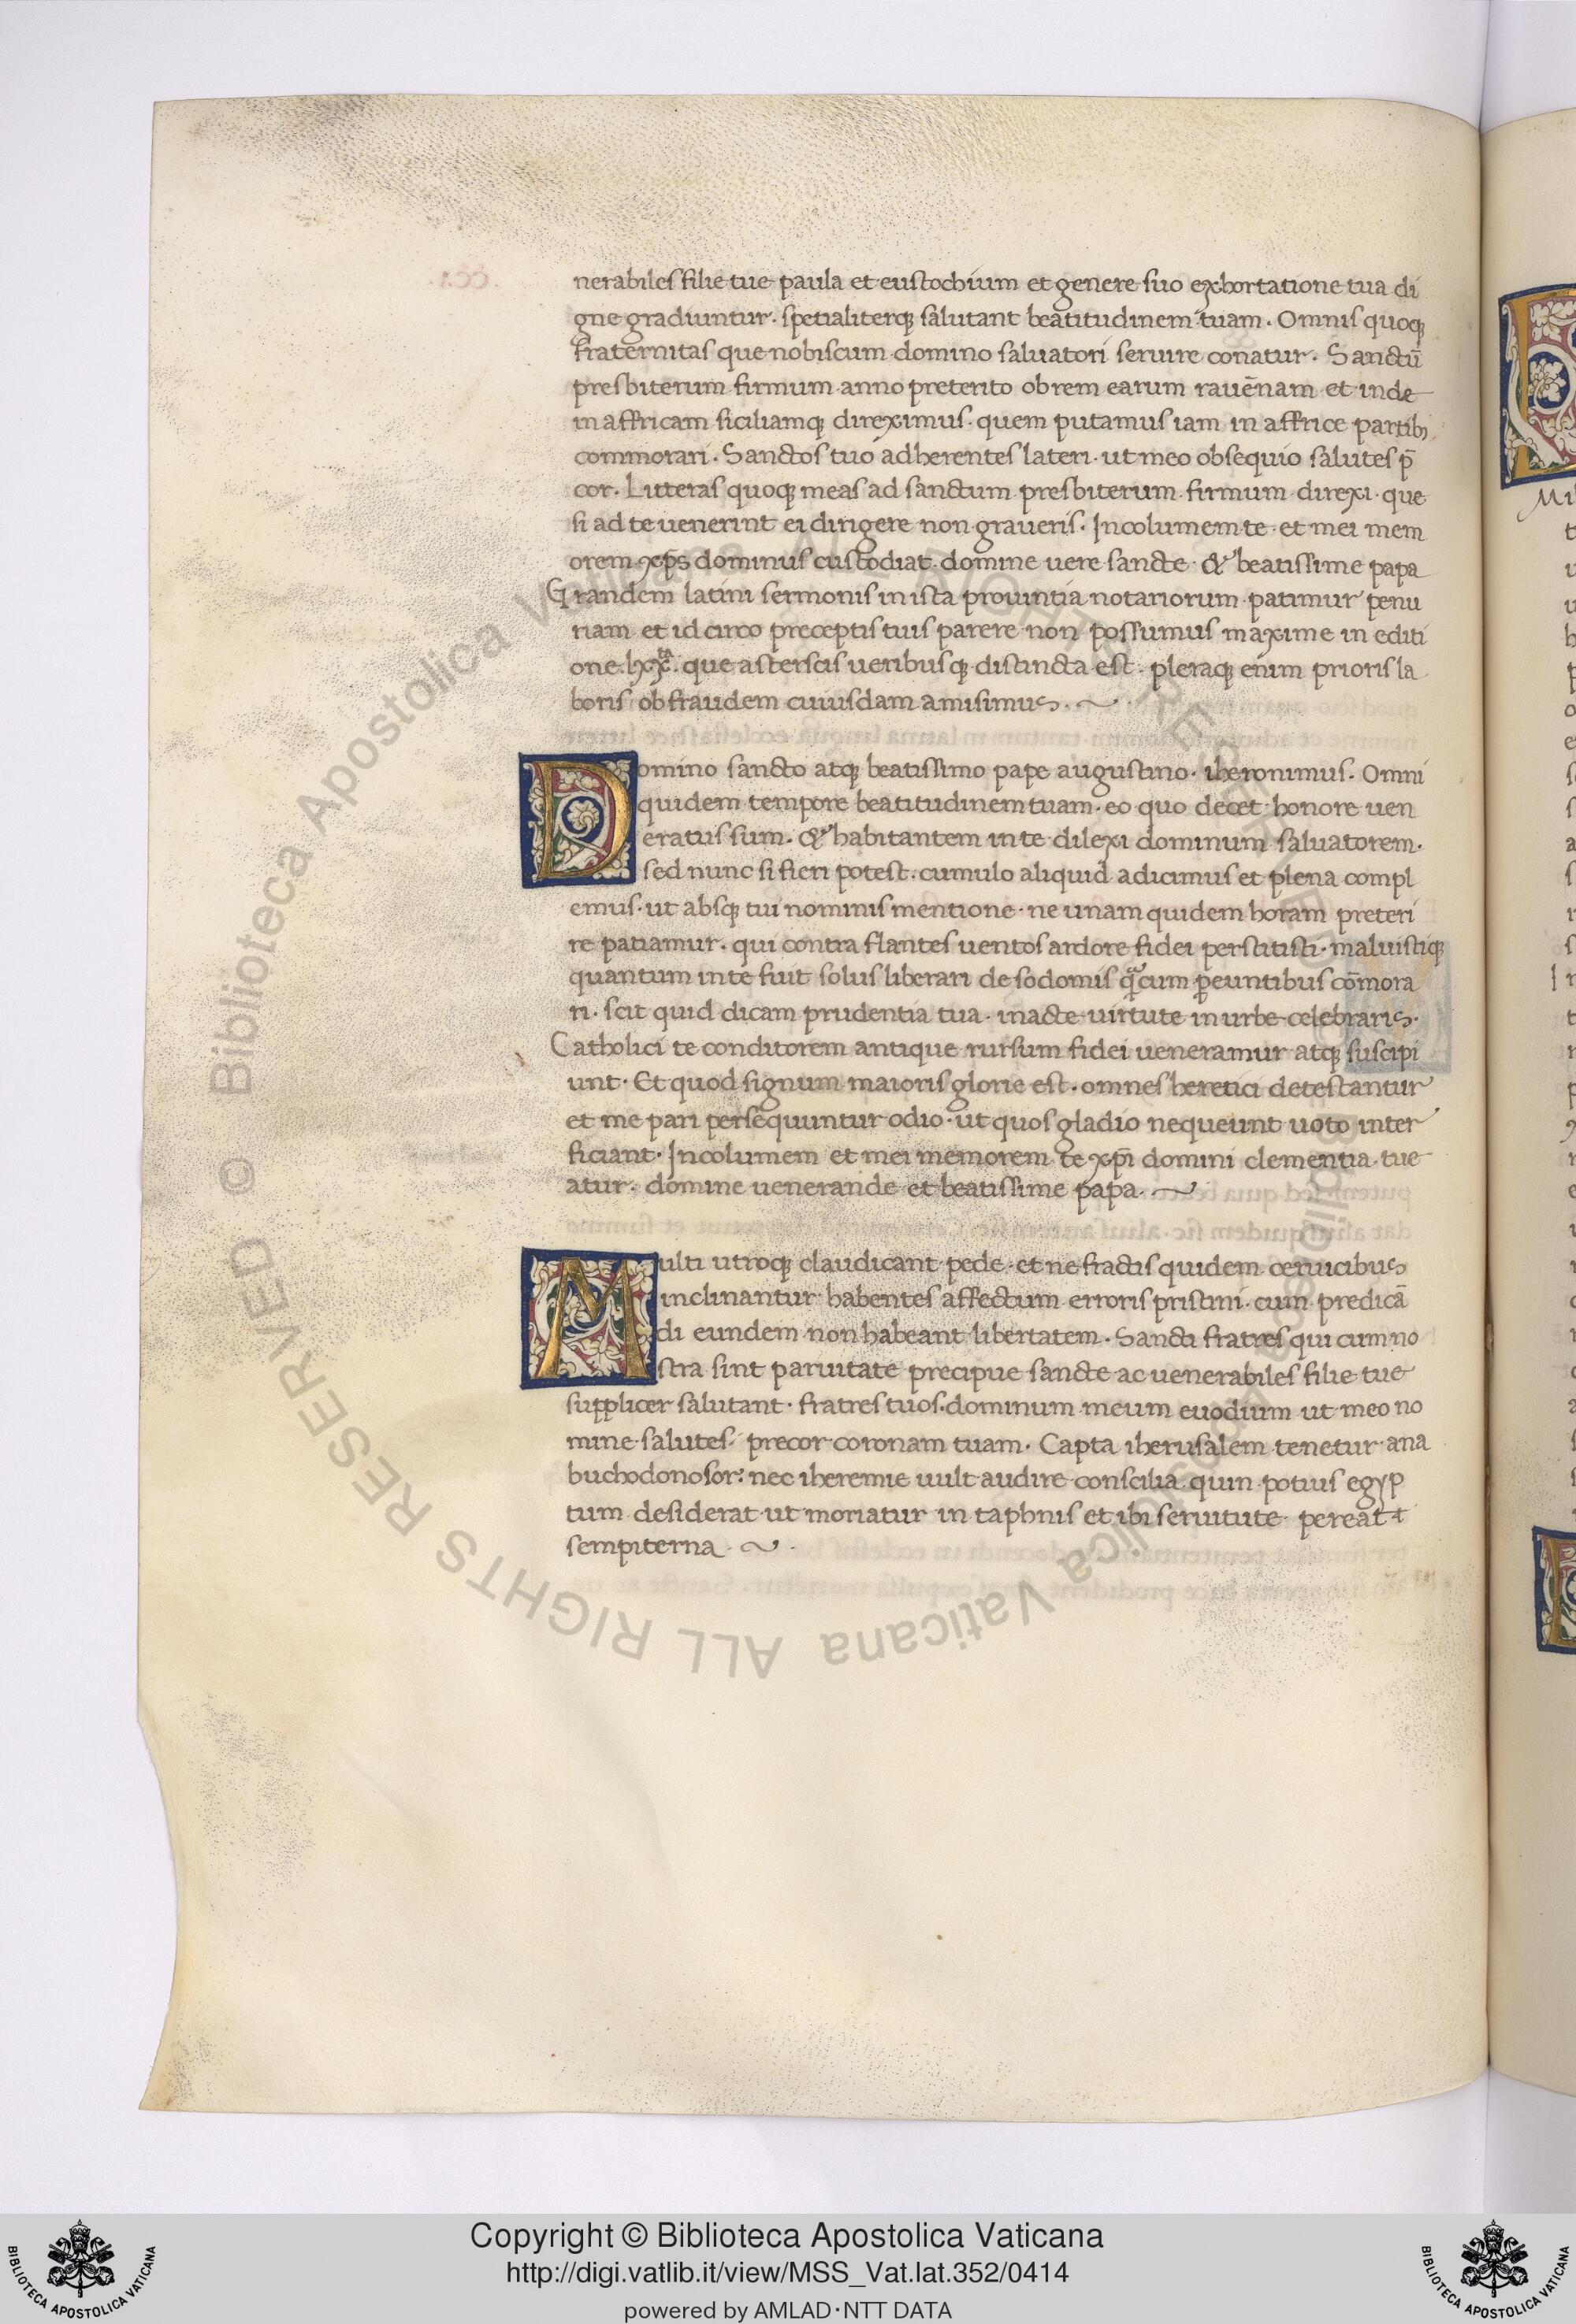 nerabiles filie tue paula et eustochium et genere suo exhortatione tua di
gne gradiuntur. spetialiterq; salutant beatitudinem tuam. Omnis quoq;
fraternitas que nobiscum domino saluatori seruire conatur. Sanctū
presbiterum firmum anno preterito ob rem earum rauēnam et inde
in affricam siciliamq; direximus. quem putamus iam in affrice partib;
commorari. Sanctos tuo adherentes lateri. ut meo obsequio salutes p̄
cor. Litteras quoq; meas ad sanctum presbiterum firmum direxi. que
si ad te uenerint ei dirigere non graueris. Incolumem te et mei mem
orem xp̄s dominus custodiat. domine uere sancte & beatissime papa
Grandem latini sermonis in ista prouintia notariorum patimur penu
riam et id circo preceptis tuis parere non possumus maxime in editi
one. lxxᵗᵃ. que asterscis ueribusq; distincta est. pleraq; enim prioris la
boris ob fraudem cuiusdam amisimus.
Domino sancto atq; beatissimo pape augustino. iheronimus. Omni
quidem tempore beatitudinem tuam. eo quo decet honore uen
eratus sum. & habitantem in te dilexi dominum saluatorem.
sed nunc si fieri potest. cumulo aliquid adicimus et plena compl
emus. ut absq; tui nominis mentione. ne unam quidem horam preteri
re patiamur. qui contra flantes uentos ardore fidei perstitisti. maluistiq;
quantum in te fuit solus liberari de sodomis q̄cum ꝑeuntibus cōmora
ri. scit quid dicam prudentia tua. inacte uirtute in urbe celebraris.
Catholici te conditorem antique rursum fidei ueneramur atq; suscipi
unt. Et quod signum maioris glorie est. omnes heretici detestantur
et me pari persequuntur odio. ut quos gladio nequeunt uoto inter
ficiant. Incolumem et mei memorem te xp̄i domini clementia tue
atur. domine uenerande et beatissime papa.
Multi utroq; claudicant pede. et ne fractis quidem ceruicibus
inclinantur habentes affectum erroris pristini. cum predicā
di eundem non habeant libertatem. Sancti fratres qui cum no
stra sint paruitate precipue sancte ac uenerabiles filie tue
suppliciter salutant. fratres tuos. dominum meum euodium ut meo no
mine salutes. precor coronam tuam. Capta iherusalem tenetur ana
buchodonosor. nec iheremie uult audire conscilia. quin potius egyp
tum desiderat ut moriatur in taphnis et ibi seruitute pereat
sempiterna.
© Biblioteca Apostolica Vaticana ALL RIGHTS RESERVED
Copyright © Biblioteca Apostolica Vaticana
http://digi.vatlib.it/view/MSS_Vat.lat.352/0414
powered by AMLAD·NTT DATA
BIBLIOTECA APOSTOLICA VATICANA
BIBLIOTECA APOSTOLICA VATICANA